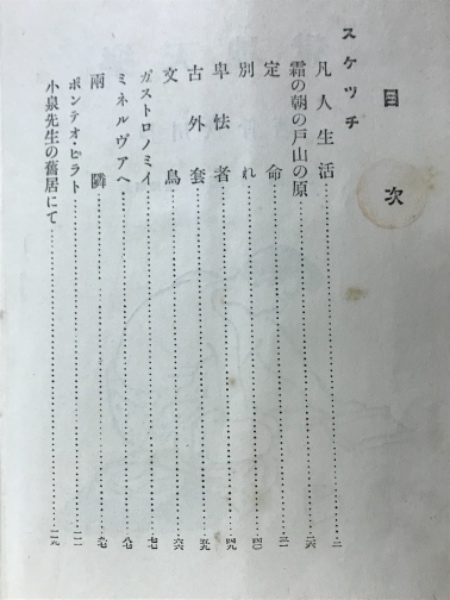 目次
スケツチ
凡人生活……二
霜の朝の戸山の原……二六
定命……三一
別れ……四〇
卑怯者……四九
古外套……五九
文鳥……六六
ガストロノミイ……七七
ミネルヴアヘ……八七
兩隣……九七
ポンテオ・ピラト……一一一
小泉先生の舊居にて……一一九